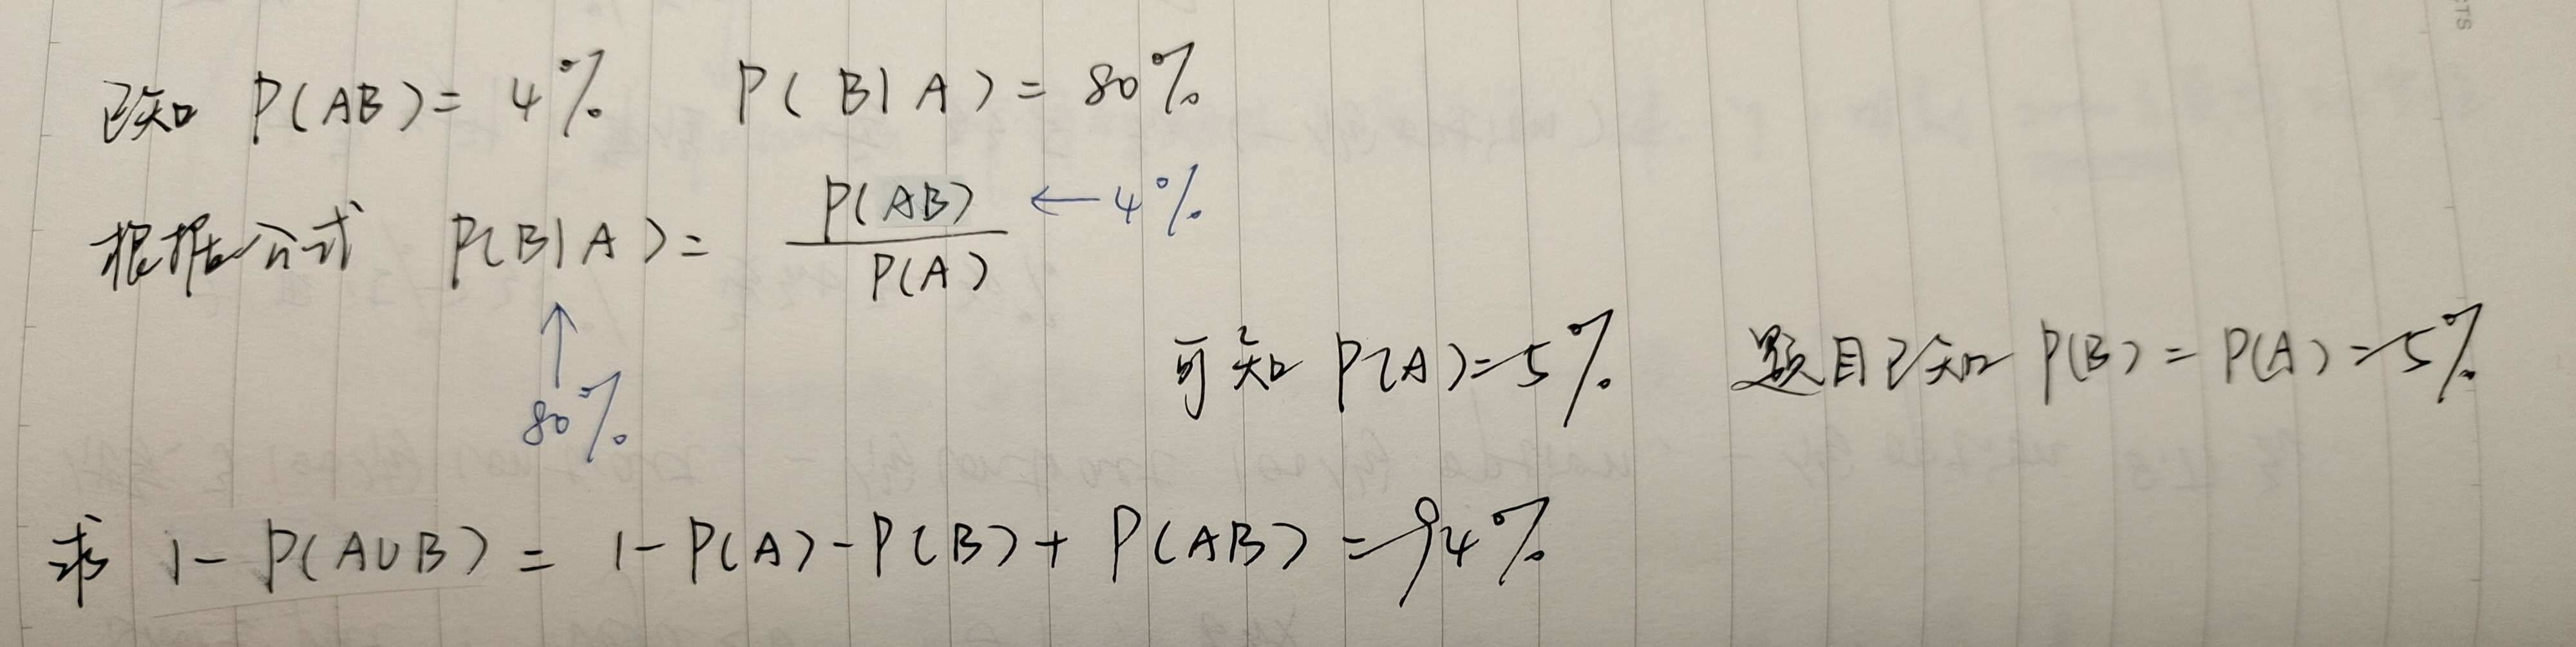 已知 P(AB)= 4% P(B|A)= 80%
根据公式 P(B|A)= P(AB)/P(A) ←4%
↑
80%
可知 P(A)=5% 题目已知 P(B)=P(A)=5%
求 1-P(A∪B)= 1-P(A)-P(B)+P(AB)=94%